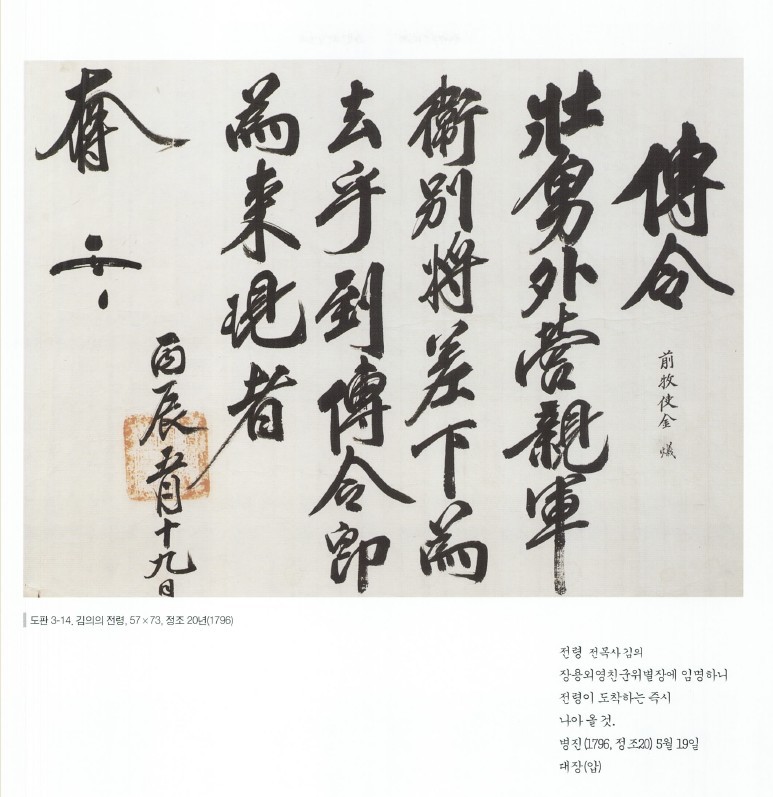 傳令
前牧使金
壯勇外營親軍
衛別將差下爲
去乎到傳令卽
爲來現者
丙辰五月十九日
도판 3-14. 김의의 전령, 57×73, 정조 20년(1796)
전령 전목사 김의
장용외영친군위별장에 임명하니
전령이 도착하는 즉시
나아 올 것.
병진(1796, 정조20) 5월 19일
대장(압)